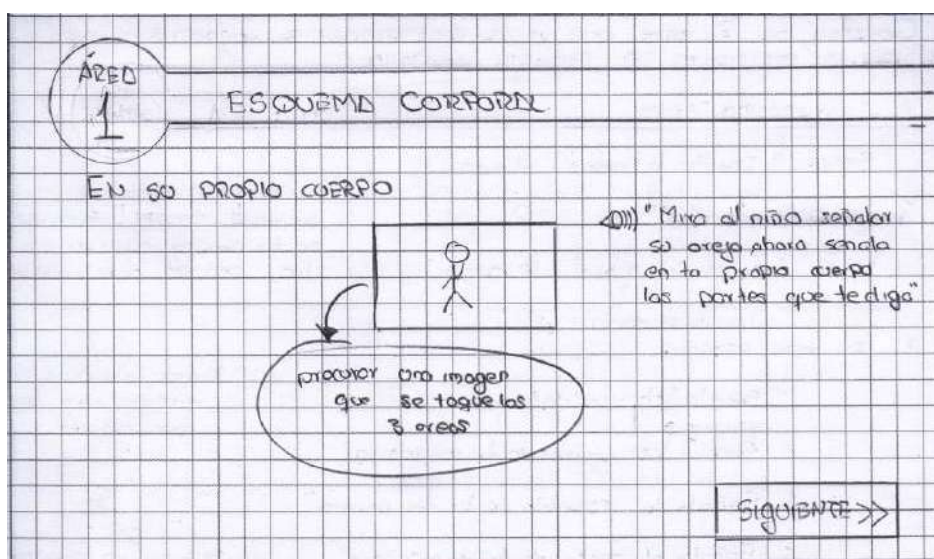 ÁREA
1
ESQUEMA CORPORAL
EN SU PROPIO CUERPO
"Mira al niño señalar
su oreja ahora señala
en tu propio cuerpo
las partes que te digo"
procurar una imagen
que se toque las
3 areas
SIGUIENTE >>